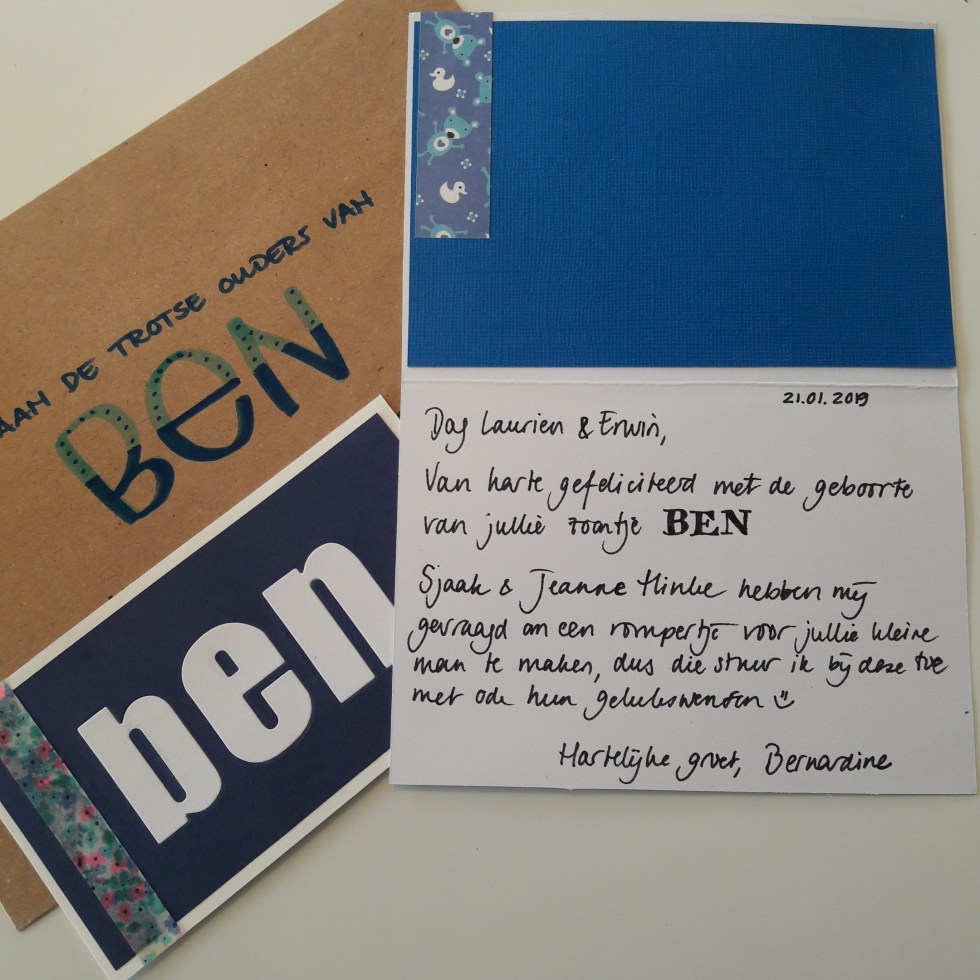 AAN DE TROTSE OUDERS VAN
BEN
ben
21.01.2019
Dag Laurien & Erwin,
Van harte gefeliciteerd met de geboorte
van jullie zoontje BEN
Sjaak & Jeanne Hinke hebben mij
gevraagd om een rompertje voor jullie kleine
man te maken, dus die stuur ik bij deze toe
met ook hun gelukswensen
Hartelijke groet, Bernardine